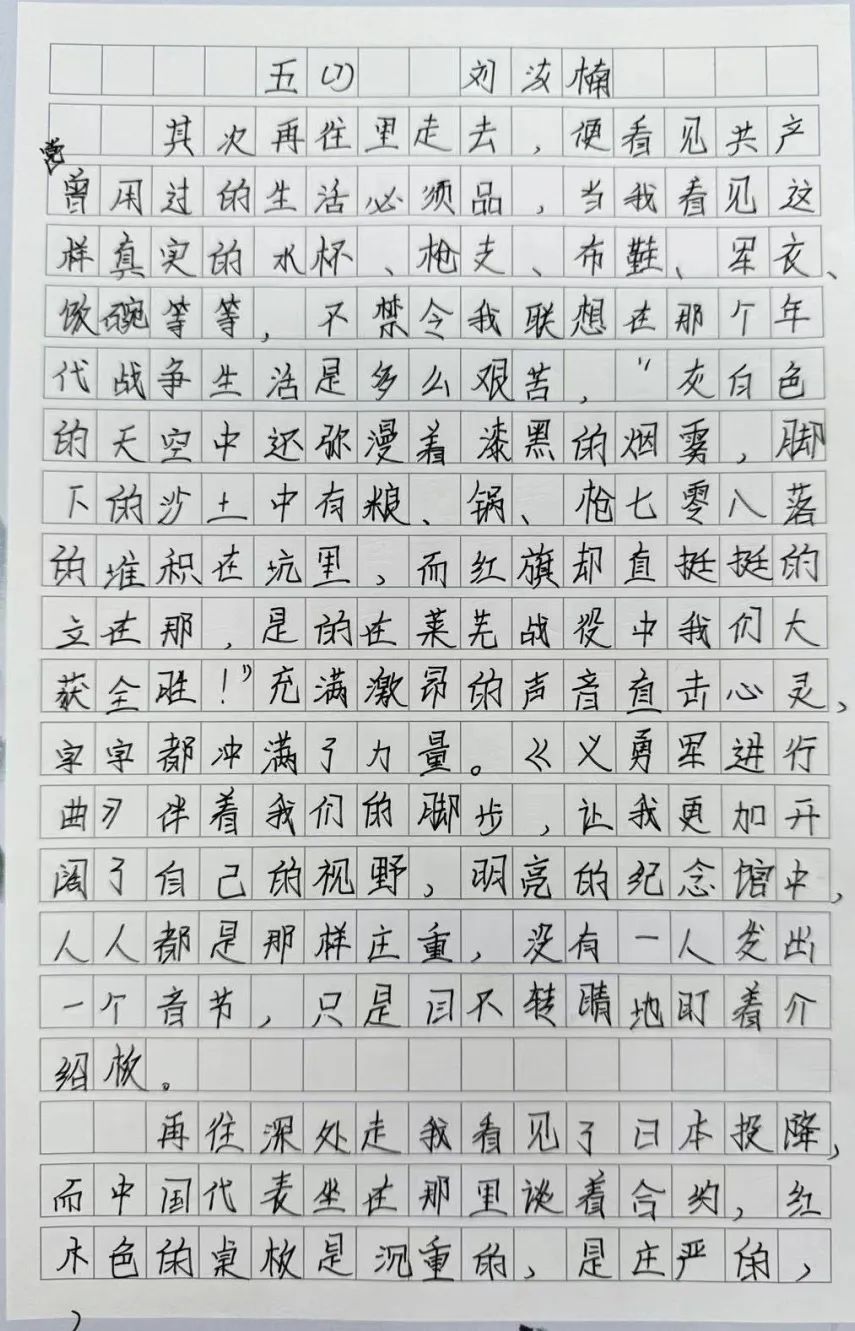 五(7) 刘洨楠
其次再往里走去，便看见共产
党
曾用过的生活必须品，当我看见这
样真实的水杯、枪支、布鞋、军衣、
饭碗等等，不禁令我联想在那个年
代战争生活是多么艰苦，"灰白色
的天空中还弥漫着漆黑的烟雾，脚
下的沙土中有粮、锅、枪七零八落
的堆积在坑里，而红旗却直挺挺的
立在那，是的在莱芜战役中我们大
获全胜！"充满激昂的声音直击心灵，
字字都冲满了力量。《义勇军进行
曲》伴着我们的脚步，让我更加开
阔了自己的视野，明亮的纪念馆中，
人人都是那样庄重，没有一人发出
一个音节，只是目不转睛地盯着介
绍板。
再往深处走我看见了日本投降，
而中国代表坐在那里谈着合约，红
木色的桌板是沉重的，是庄严的，